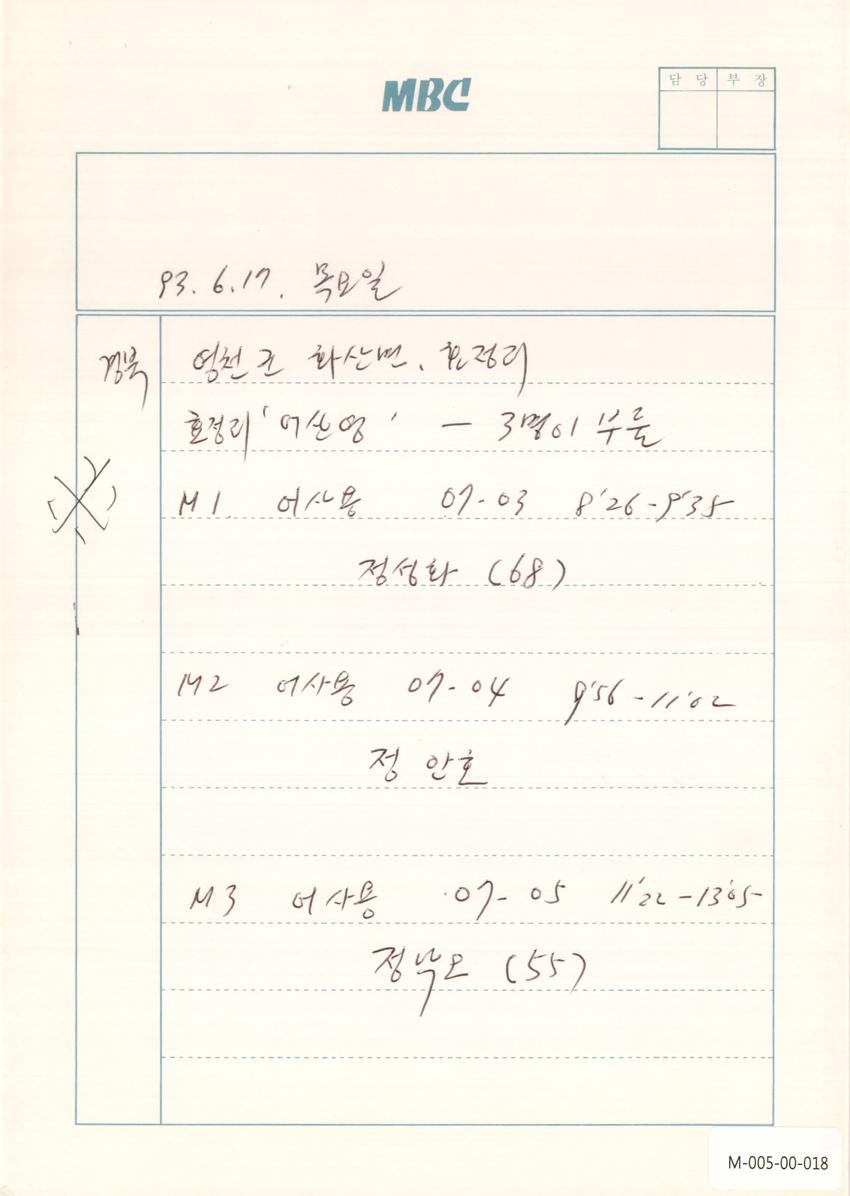 MBC
담당 부장
93. 6. 17. 목요일
경북 영천군 화산면. 효정리
효정리 '어산영' — 3명이 부름
M1. 어사용 07-03 8'26-9'38
정성화 (68)
M2 어사용 07-04 9'56-11'02
정안호
M3 어사용 07-05 11'22-13'05
정낙오 (55)
M-005-00-018